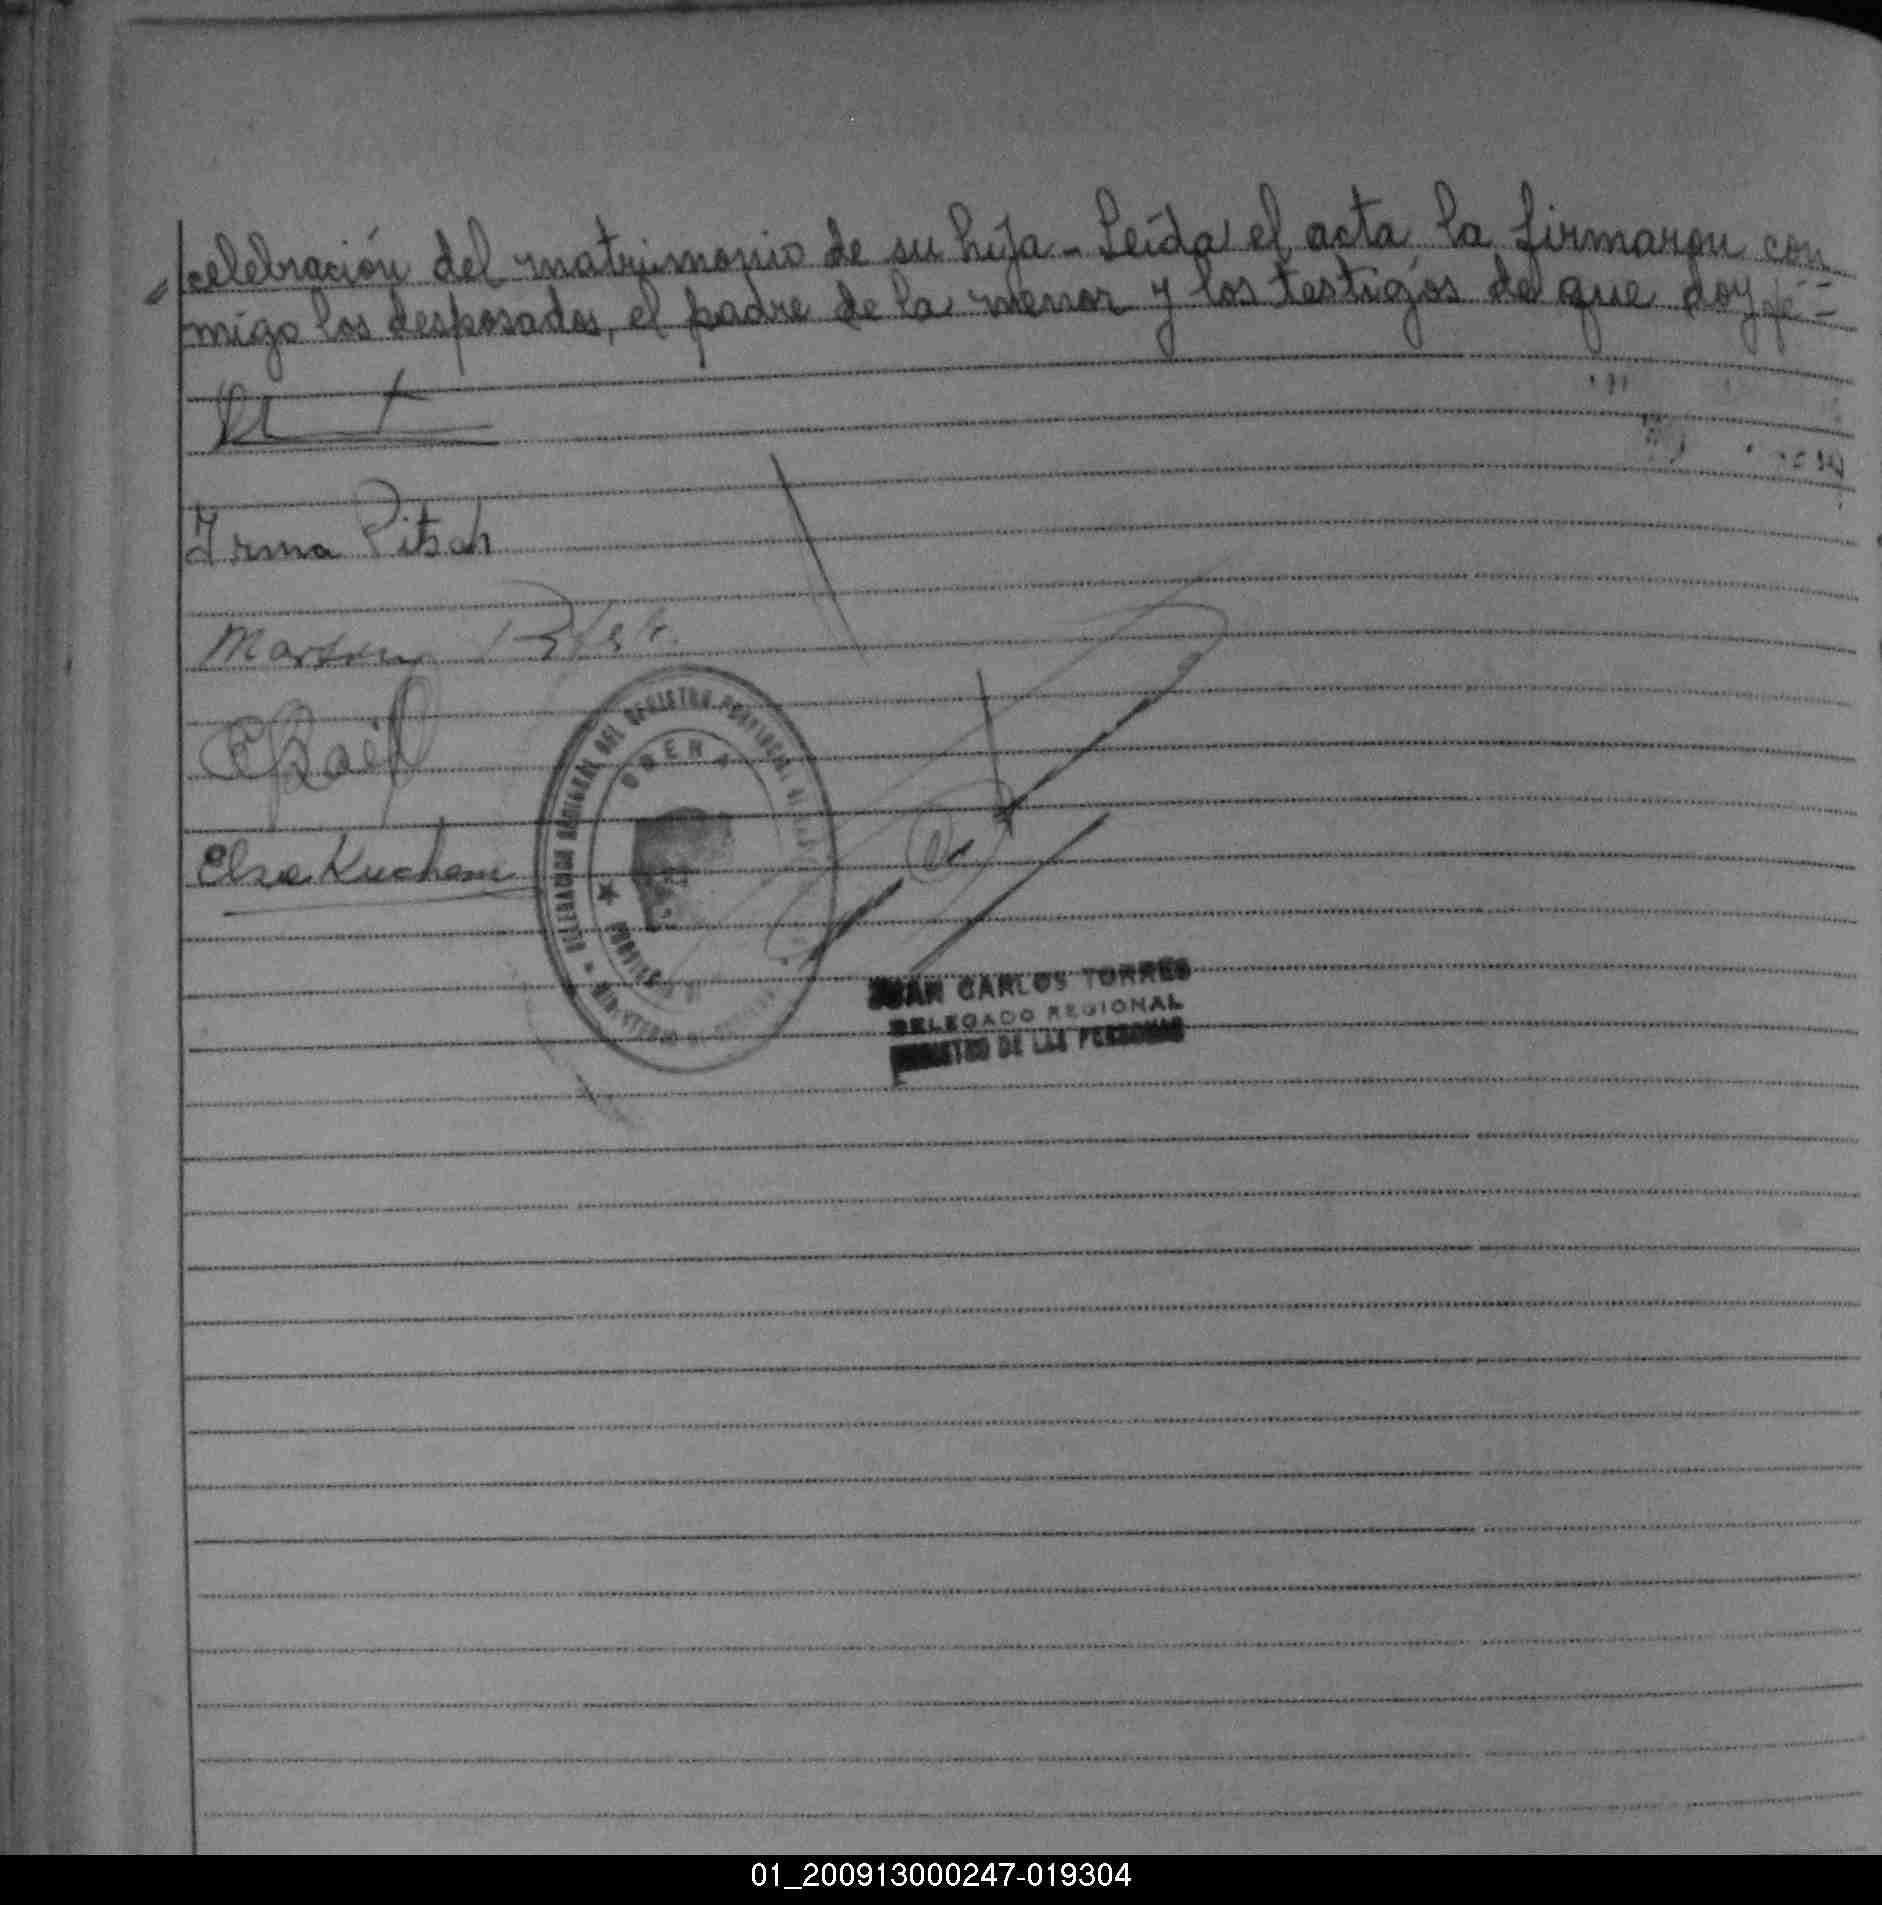 celebración del matrimonio de su hija - Leída el acta la firmaron con
migo los desposados, el padre de la menor y los testigos de que doy fé =
Irma Pitsch
Martin
Elsa Kuchem
DELEGACION REGIONAL DEL REGISTRO PROVINCIAL DE LAS
OBERA
JUAN CARLOS TORRES
DELEGADO REGIONAL
REGISTRO DE LAS PERSONAS
01_200913000247-019304